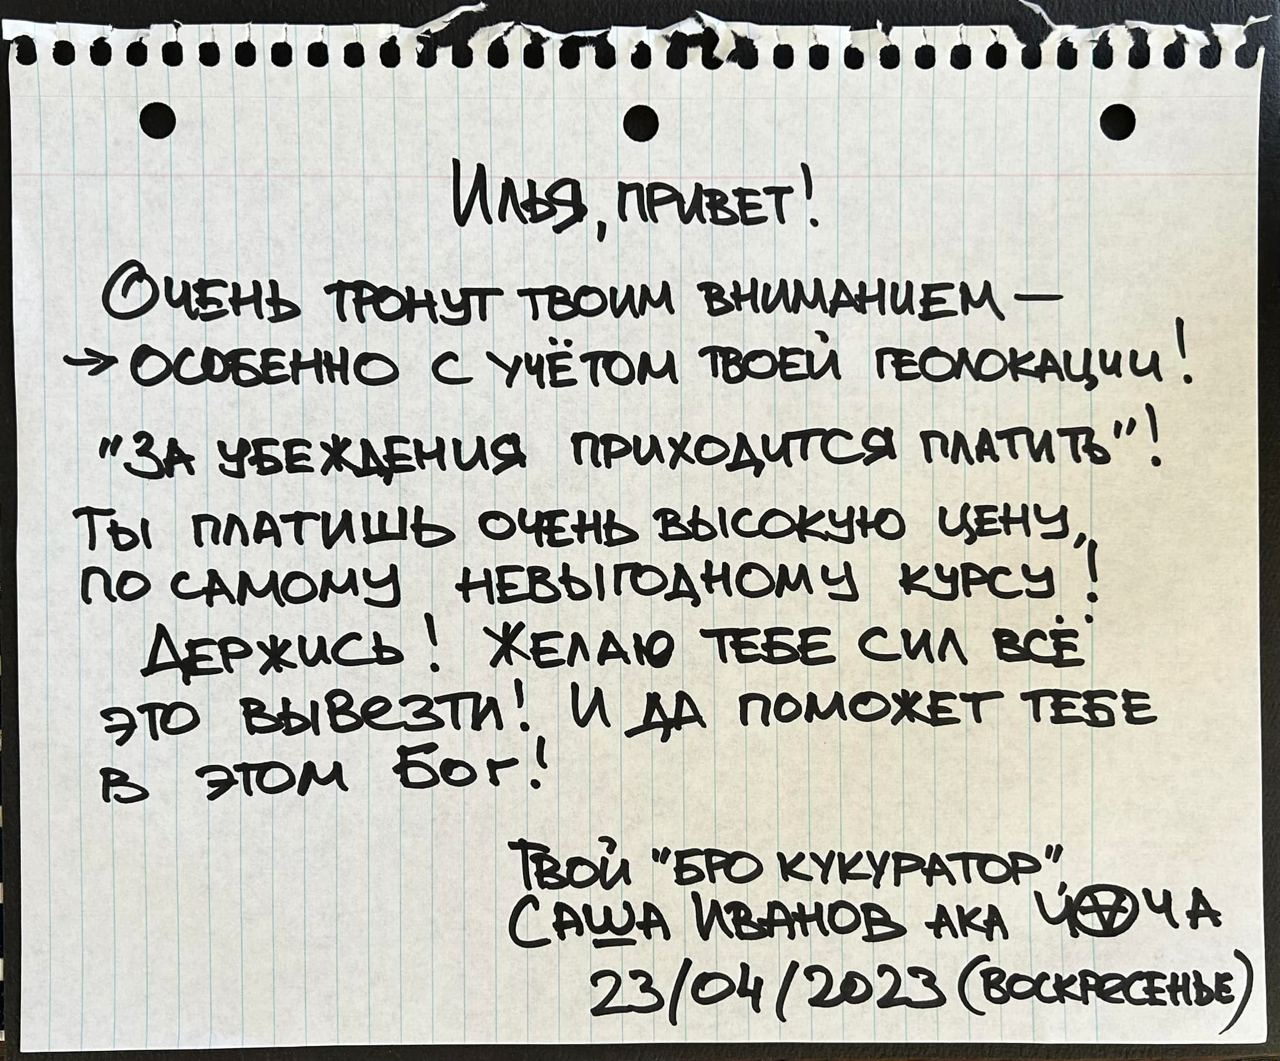 Илья, привет!
Очень тронут твоим вниманием —
→ особенно с учётом твоей геолокации!
"За убеждения приходится платить"!
Ты платишь очень высокую цену,
по самому невыгодному курсу!
Держись! Желаю тебе сил всё
это вывезти! И да поможет тебе
в этом Бог!
Твой "бро кукуратор",
Саша Иванов ака
23/04/2023 (воскресенье)